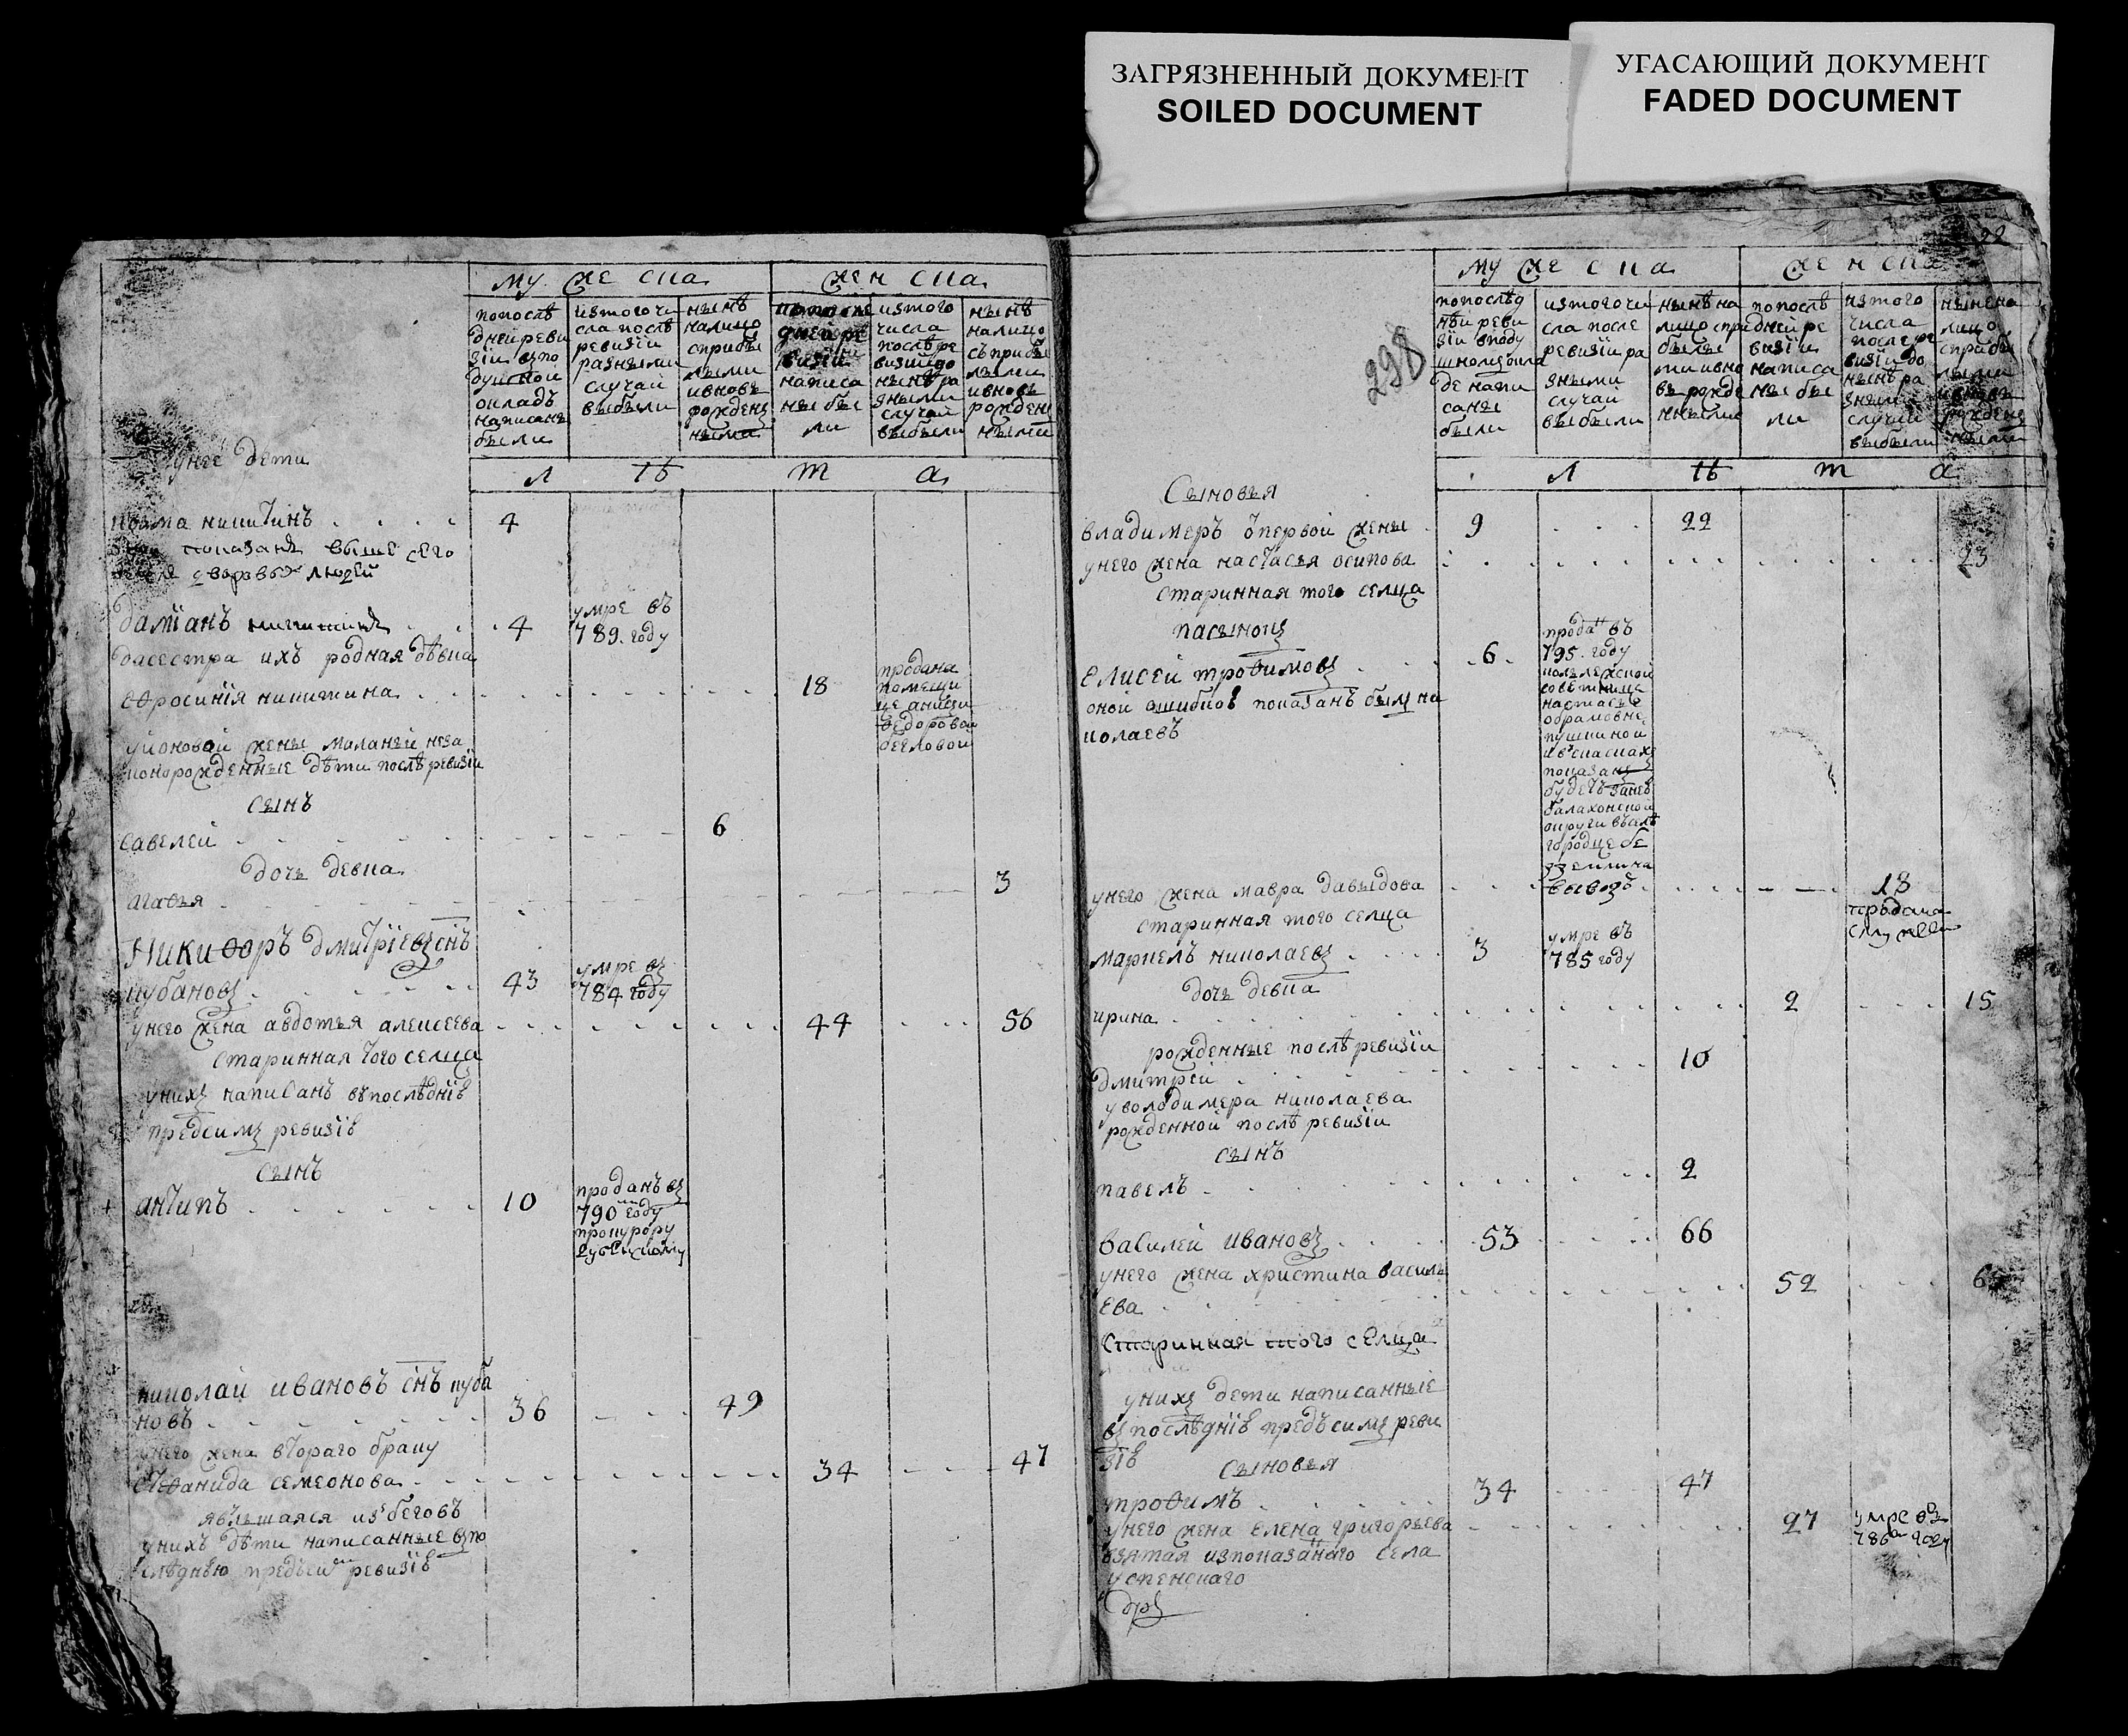 ЗАГРЯЗНЕННЫЙ ДОКУМЕНТ
SOILED DOCUMENT
УГАСАЮЩИЙ ДОКУМЕНТ
FADED DOCUMENT
муже ска
жен ска
попослѣ
дней реви
зіи впо
душной
окладъ
написанъ
были
изтогочи
сла послѣ
ревизіи
разными
случаи
выбыли
нынѣ
налицо
сприбы
лыми
ивновь
рожденз
ными
дней ре
визіи
написа
ны бы
ли
изтого
числа
послѣ ре
визіи до
нынѣ ра
зными
случаи
выбыли
нынѣ
налицо
съ прибы
лыми
ивновь
рожденз
ными
л ѣ т а
унее дети
никитинъ 4
показанъ выше сего
дворовыхъ людей
даміанъ 4
умре въ
789 году
дасестра ихъ родная дѣвка
ефросинія никитина 18
продана
помещи
це
федоровой
уионовой жены маланьи неза
конорожденные дѣти послѣ ревизіи
сынъ
савелей 6
дочь девка
агафья 3
Никифоръ дмитріевз снъ
кубановз 43
умре вз
784 году
унего жена авдотья алексеева 44 56
старинная того селца
унихз написанъ въпослѣдніѣ
предсимз ревизіѣ
сынъ
антипъ 10
проданъ вз
790м году
прокурору
николай ивановъ снъ куба
новъ 36 49
унего жена втораго браку
стефанида семеонова 34 47
явльшаяся из беговъ
унихъ дѣти написанные впо
слѣднѣю предъсим ревизіѣ
22
298
муже ска
жен ска
попослѣд
нѣи реви
зіи вподу
шномъокла
де напи
саны
были
изтогочи
сла после
ревизіи ра
зными
случаи
выбыли
нынѣ на
лицо спри
былы
ми ивно
въ рожде
нными
попослѣ
дней ре
визіи
написа
ны бы
ли
изтого
числа
после ре
визіи до
нынѣ ра
зными
случаи
выбыли
нынѣ на
лицо
сприбы
лыми
ивновь
рожденз
ными
л ѣ т а
Сыновья
владимеръ отпервой жены 9 22
унего жена настасья осипова 23
старинная того селца
пасынокз
Елисей трофимовз 6
продан въ
795 году
колежской
советнице
настасье
абрамовне
пушкиной
ивсказках
показанз
будетъ занеѣ
балахонской
округи въселѣ
городце бе
вывозу
оной ошибкоѣ показанъ былз ни
колаевъ
унего жена мавра давыдова 18
старинная того селца
продана
маркелъ николаевз 3
умре въ
785 году
дочь девка
ирина 2 15
рожденные послѣ ревизіи
дмитрей 10
уволодимера николаева
рожденной послѣ ревизіи
сынъ
павелъ 2
василей ивановз 53 66
унего жена христина василь
ева 52
Старинная того селца
унихз дети написанные
вз послѣдніѣ предъсимз реви
зіѣ сыновья
трофимъ 34 47
унего жена елена григорьева 27
умре вз
786м году
взятая изпоказаннаго села
успенскаго